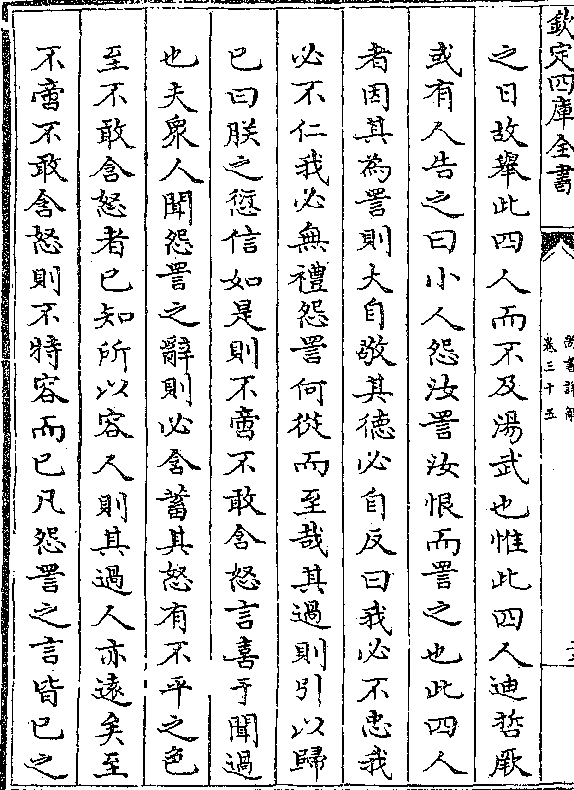 欽定四庫全書
尚書詳解
卷三十五
之日故舉此四人而不及湯武也惟此四人迪哲厥
或有人告之曰小人怨汝詈汝恨而詈之也此四人
者因其為詈則大自敬其德必自反曰我必不忠我
必不仁我必無禮怨詈何從而至哉其過則引以歸
已曰朕之愆信如是則不啻不敢含怒言喜于聞過
也夫衆人聞怨詈之辭則必含蓄其怒有不平之色
至不敢含怒者已知所以容人則其過人亦遠矣至
不啻不敢含怒則不特容而已凡怨詈之言皆已之